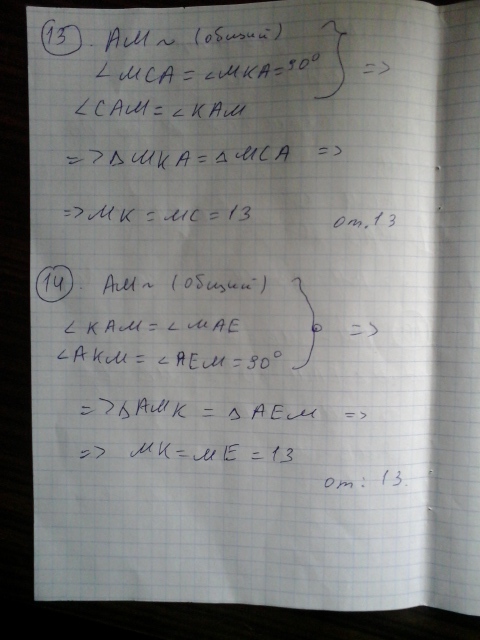 13. AM ~ (общий)
∠MCA = ∠MKA = 90° =>
∠CAM = ∠KAM
=> △MKA = △MCA =>
=> MK = MC = 13
от. 13
14. AM ~ (общий)
∠KAM = ∠MAE =>
∠AKM = ∠AEM = 90°
=> △AMK = △AEM =>
=> MK = ME = 13
от: 13.